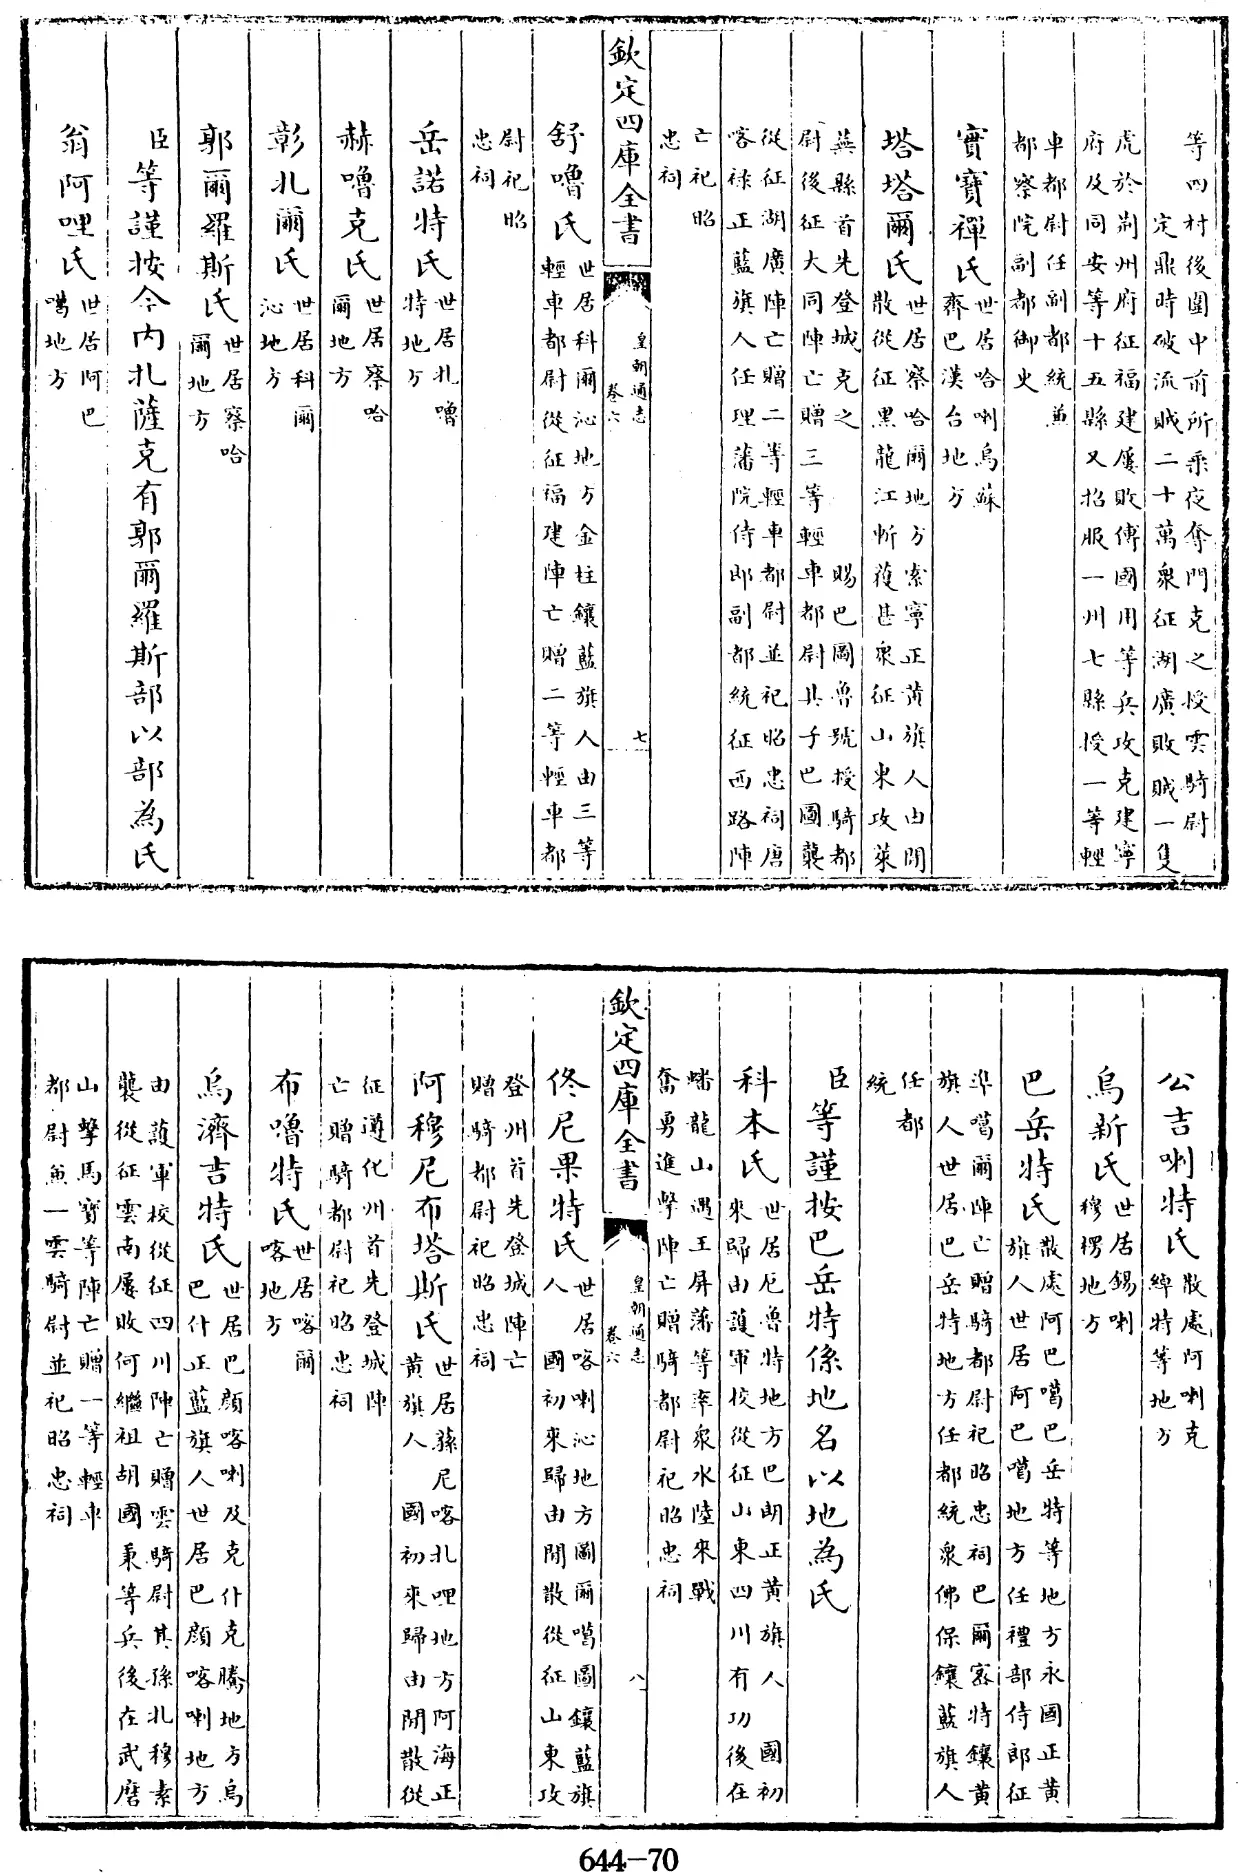 等四村後圍中前所乘夜奪門克之授雲騎尉
定鼎時破流賊二十萬衆征湖廣敗賊一隻
虎於荆州府征福建屢敗傅國用等兵攻克建寧
府及同安等十五縣又招服一州七縣授一等輕
車都尉任副都統兼
都察院副都御史
實寶禪氏世居哈喇烏蘇
齊巴漢台地方
塔塔爾氏世居察哈爾地方索寧正黃旗人由閒
散從征黑龍江斬獲甚衆征山東攻萊
蕪縣首先登城克之 賜巴圖魯號授騎都
尉後征大同陣亡贈三等輕車都尉其子巴圖襲
從征湖廣陣亡贈二等輕車都尉並祀昭忠祠唐
喀祿正藍旗人任理藩院侍郎副都統征西路陣
亡祀昭
忠祠
欽定四庫全書
皇朝通志
卷六
七
舒嚕氏世居科爾沁地方金柱鑲藍旗人由三等
輕車都尉從征福建陣亡贈二等輕車都
尉祀昭
忠祠
岳諾特氏世居扎嚕
特地方
赫嚕克氏世居察哈
爾地方
彰扎爾氏世居科爾
沁地方
郭爾羅斯氏世居察哈
爾地方
臣等謹按今内扎薩克有郭爾羅斯部以部為氏
翁阿哩氏世居阿巴
噶地方
公吉喇特氏散處阿喇克
綽特等地方
烏新氏世居錫喇
穆楞地方
巴岳特氏散處阿巴噶巴岳特等地方永國正黃
旗人世居阿巴噶地方任禮部侍郎征
準噶爾陣亡贈騎都尉祀昭忠祠巴爾密特鑲黃
旗人世居巴岳特地方任都統衆佛保鑲藍旗人
任都
統
臣等謹按巴岳特係地名以地為氏
科本氏世居厄魯特地方巴朗正黃旗人 國初
來歸由護軍校從征山東四川有功後在
蟠龍山遇王屏藩等率衆水陸來戰
奮勇進擊陣亡贈騎都尉祀昭忠祠
欽定四庫全書
皇朝通志
卷六
八
佟尼果特氏世居喀喇沁地方圖爾噶圖鑲藍旗
人 國初來歸由閒散從征山東攻
登州首先登城陣亡
贈騎都尉祀昭忠祠
阿穆尼布塔斯氏世居蘇尼喀扎哩地方阿海正
黃旗人 國初來歸由閒散從
征遵化州首先登城陣
亡贈騎都尉祀昭忠祠
布嚕特氏世居喀爾
喀地方
烏濟吉特氏世居巴顏喀喇及克什克騰地方烏
巴什正藍旗人世居巴顏喀喇地方
由護軍校從征四川陣亡贈雲騎尉其孫扎穆素
襲從征雲南屢敗何繼祖胡國秉等兵後在武磨
山擊馬寶等陣亡贈一等輕車
都尉兼一雲騎尉並祀昭忠祠
644—70